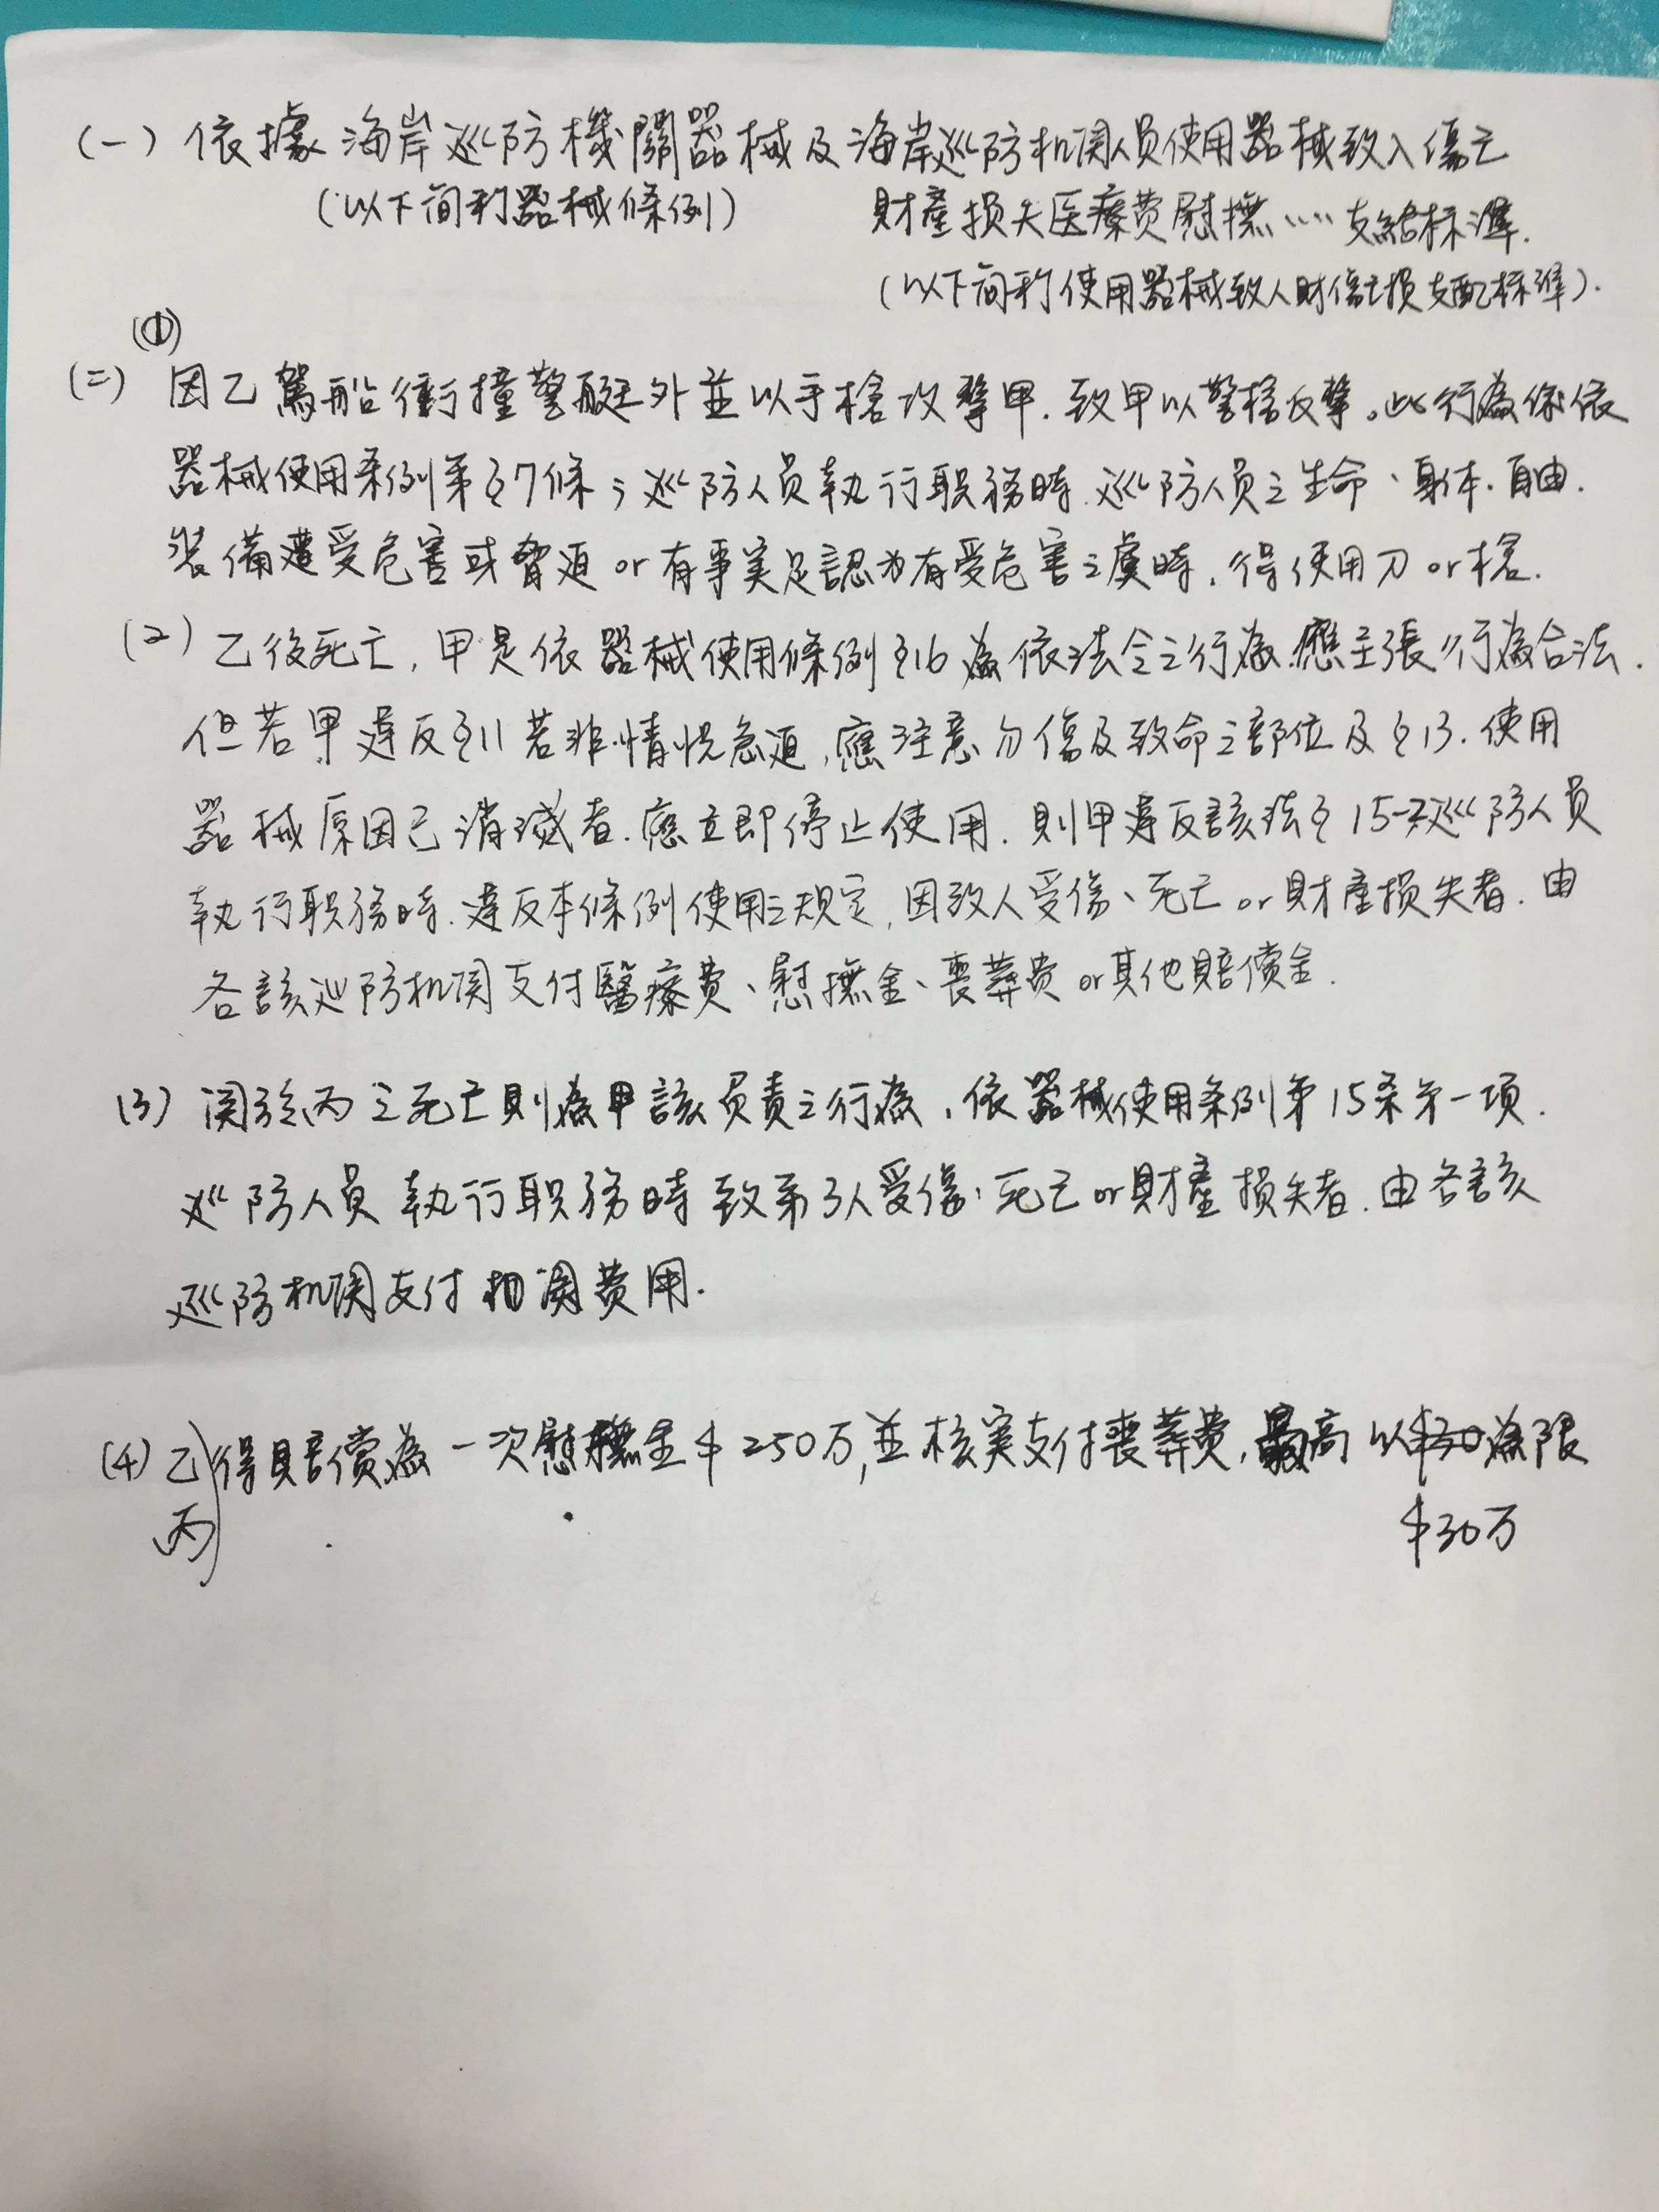 (一) 依據海岸巡防機關器械及海岸巡防机関人員使用器械致人傷亡
(以下简称器械條例) 財產損失医療費慰撫……支給标準.
(以下简称使用器械致人財傷亡損支配标準).
(1)
(二) 因乙駕船衝撞警艇外並以手槍攻擊甲.致甲以警槍反擊。此行為係依
器械使用条例第§7條;巡防人員執行职務時.巡防人員之生命、身体.自由.
裝備遭受危害或脅迫 or 有事實足認為有受危害之虞時,得使用刀 or 槍.
(2) 乙後死亡,甲是依器械使用條例§16為依法令之行為.應主張行為合法.
但若甲違反§11若非情況急迫,應注意勿傷及致命之部位及§13.使用
器械原因已消滅者.應立即停止使用.則甲違反該法§15-2巡防人員
執行职務時.違反本條例使用之規定,因致人受傷、死亡 or 財產損失者.由
各該巡防机関支付醫療費、慰撫金、喪葬費 or 其他賠償金.
(3) 関於丙之死亡則為甲該負責之行為,依器械使用条例第15条第一項.
巡防人員執行职務時致第3人受傷、死亡 or 財產損失者.由各該
巡防机関支付相関費用.
(4) 乙得賠償為一次慰撫金$250万,並核實支付喪葬費,最高以$30為限
丙 $30万